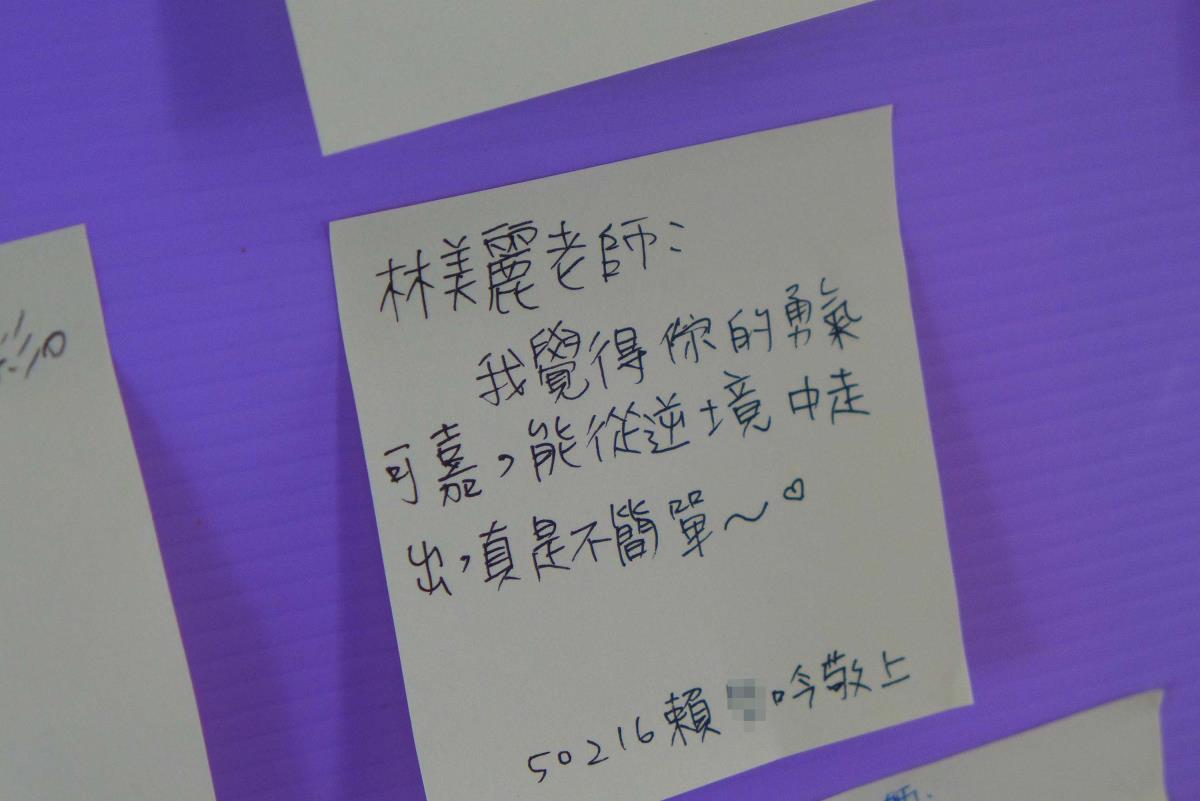 林美麗老師：
我覺得你的勇氣
可嘉，能從逆境中走
出，真是不簡單～♡
50216賴 吟敬上